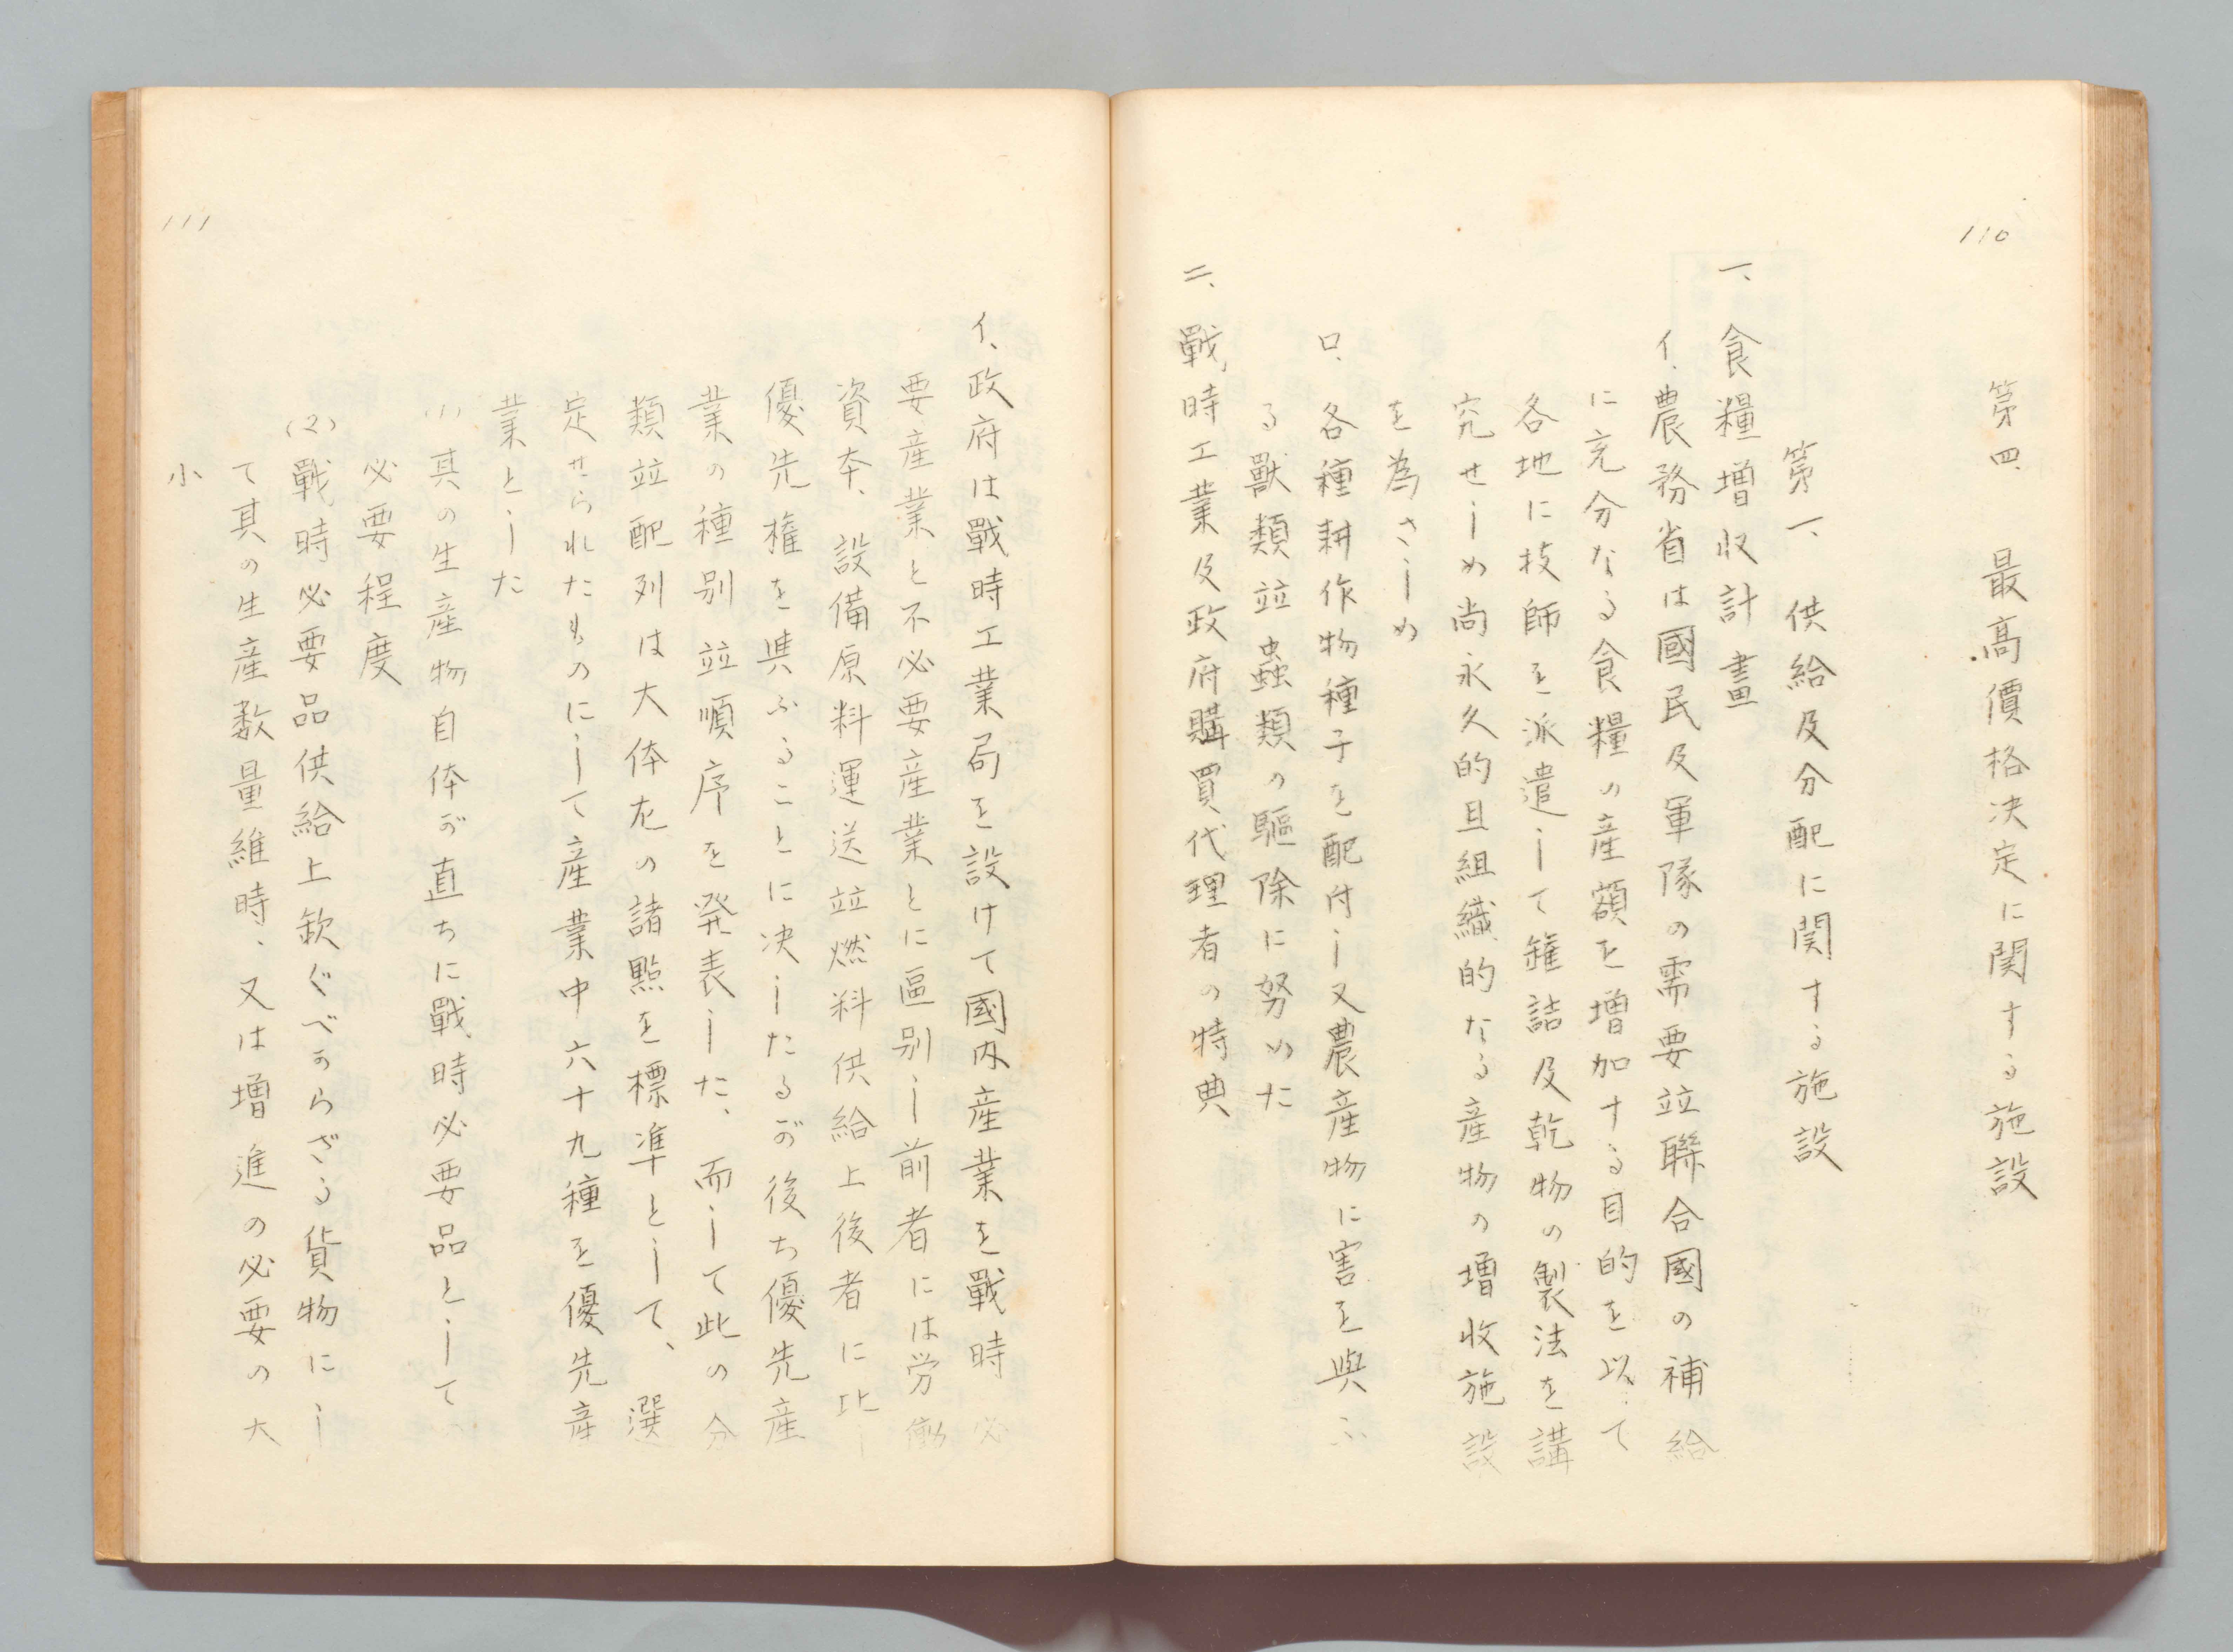 110
第四、最高價格決定に関する施設
第一、供給及分配に関する施設
一、食糧増収計畫
イ、農務省は國民及軍隊の需要並聯合國の補給
に充分なる食糧の産額を増加する目的を以て
各地に技師を派遣して鑵詰及乾物の製法を講
究せしめ尚永久的且組織的なる産物の増收施設
を為さしめ
ロ、各種耕作物種子を配付し又農産物に害を與ふ
る獸類並蟲類の驅除に努めた
二、戰時工業及政府購買代理者の特典
イ、政府は戰時工業局を設けて國内産業を戰時必
要産業と不必要産業とに區別し前者には労働
資本、設備原料運送並燃料供給上後者に比し
優先権を與ふることに決したるが後ち優先産
業の種別並順序を発表した、而して此の分
類並配列は大体左の諸點を標準として、選
定せられたものにして産業中六十九種を優先産
業とした
(1)其の生産物自体が直ちに戰時必要品としての
必要程度
(2)戰時必要品供給上欽ぐべからざる貨物にし
て其の生産数量維時、又は増進の必要の大
小
111